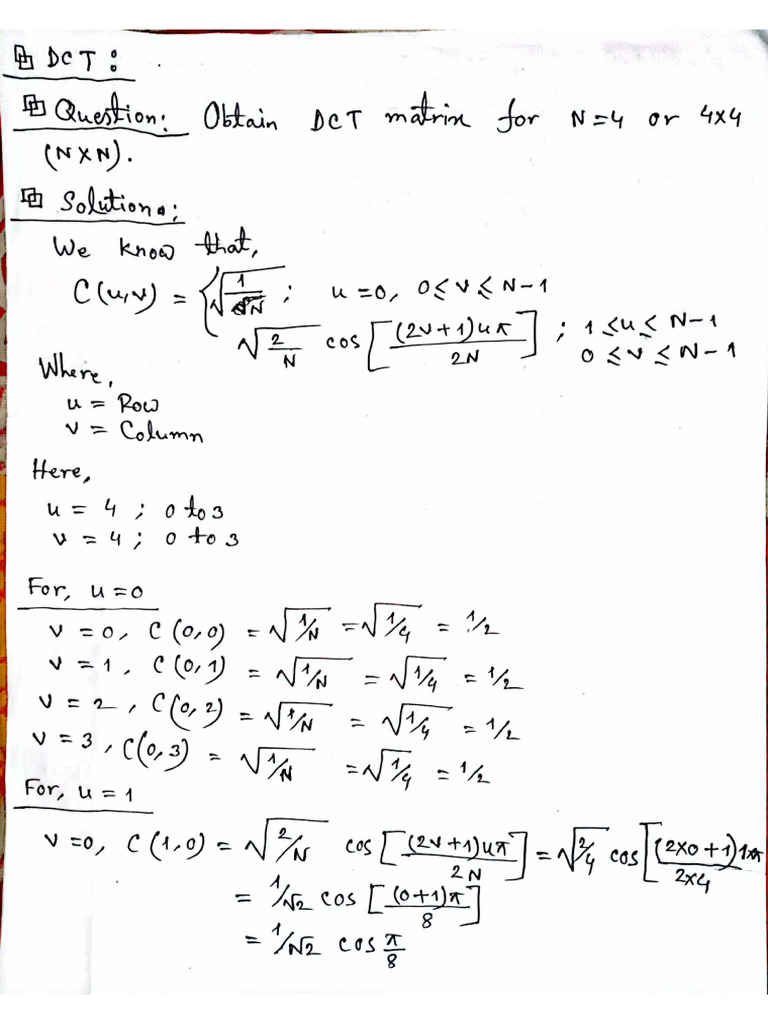 DCT:
Question: Obtain DCT matrix for N=4 or 4x4
(N x N).
Solution:
We know that,
C(u,v) = { √(1/N) ; u=0, 0≤v≤N-1
√(2/N) cos[(2v+1)uπ/2N] ; 1≤u≤N-1
0≤v≤N-1
Where,
u = Row
v = Column
Here,
u = 4 ; 0 to 3
v = 4 ; 0 to 3
For, u=0
v=0, C(0,0) = √(1/N) = √(1/4) = 1/2
v=1, C(0,1) = √(1/N) = √(1/4) = 1/2
v=2, C(0,2) = √(1/N) = √(1/4) = 1/2
v=3, C(0,3) = √(1/N) = √(1/4) = 1/2
For, u=1
v=0, C(1,0) = √(2/N) cos[(2v+1)uπ/2N] = √(2/4) cos[(2x0+1)1π/2x4]
= 1/√2 cos[(0+1)π/8]
= 1/√2 cos π/8